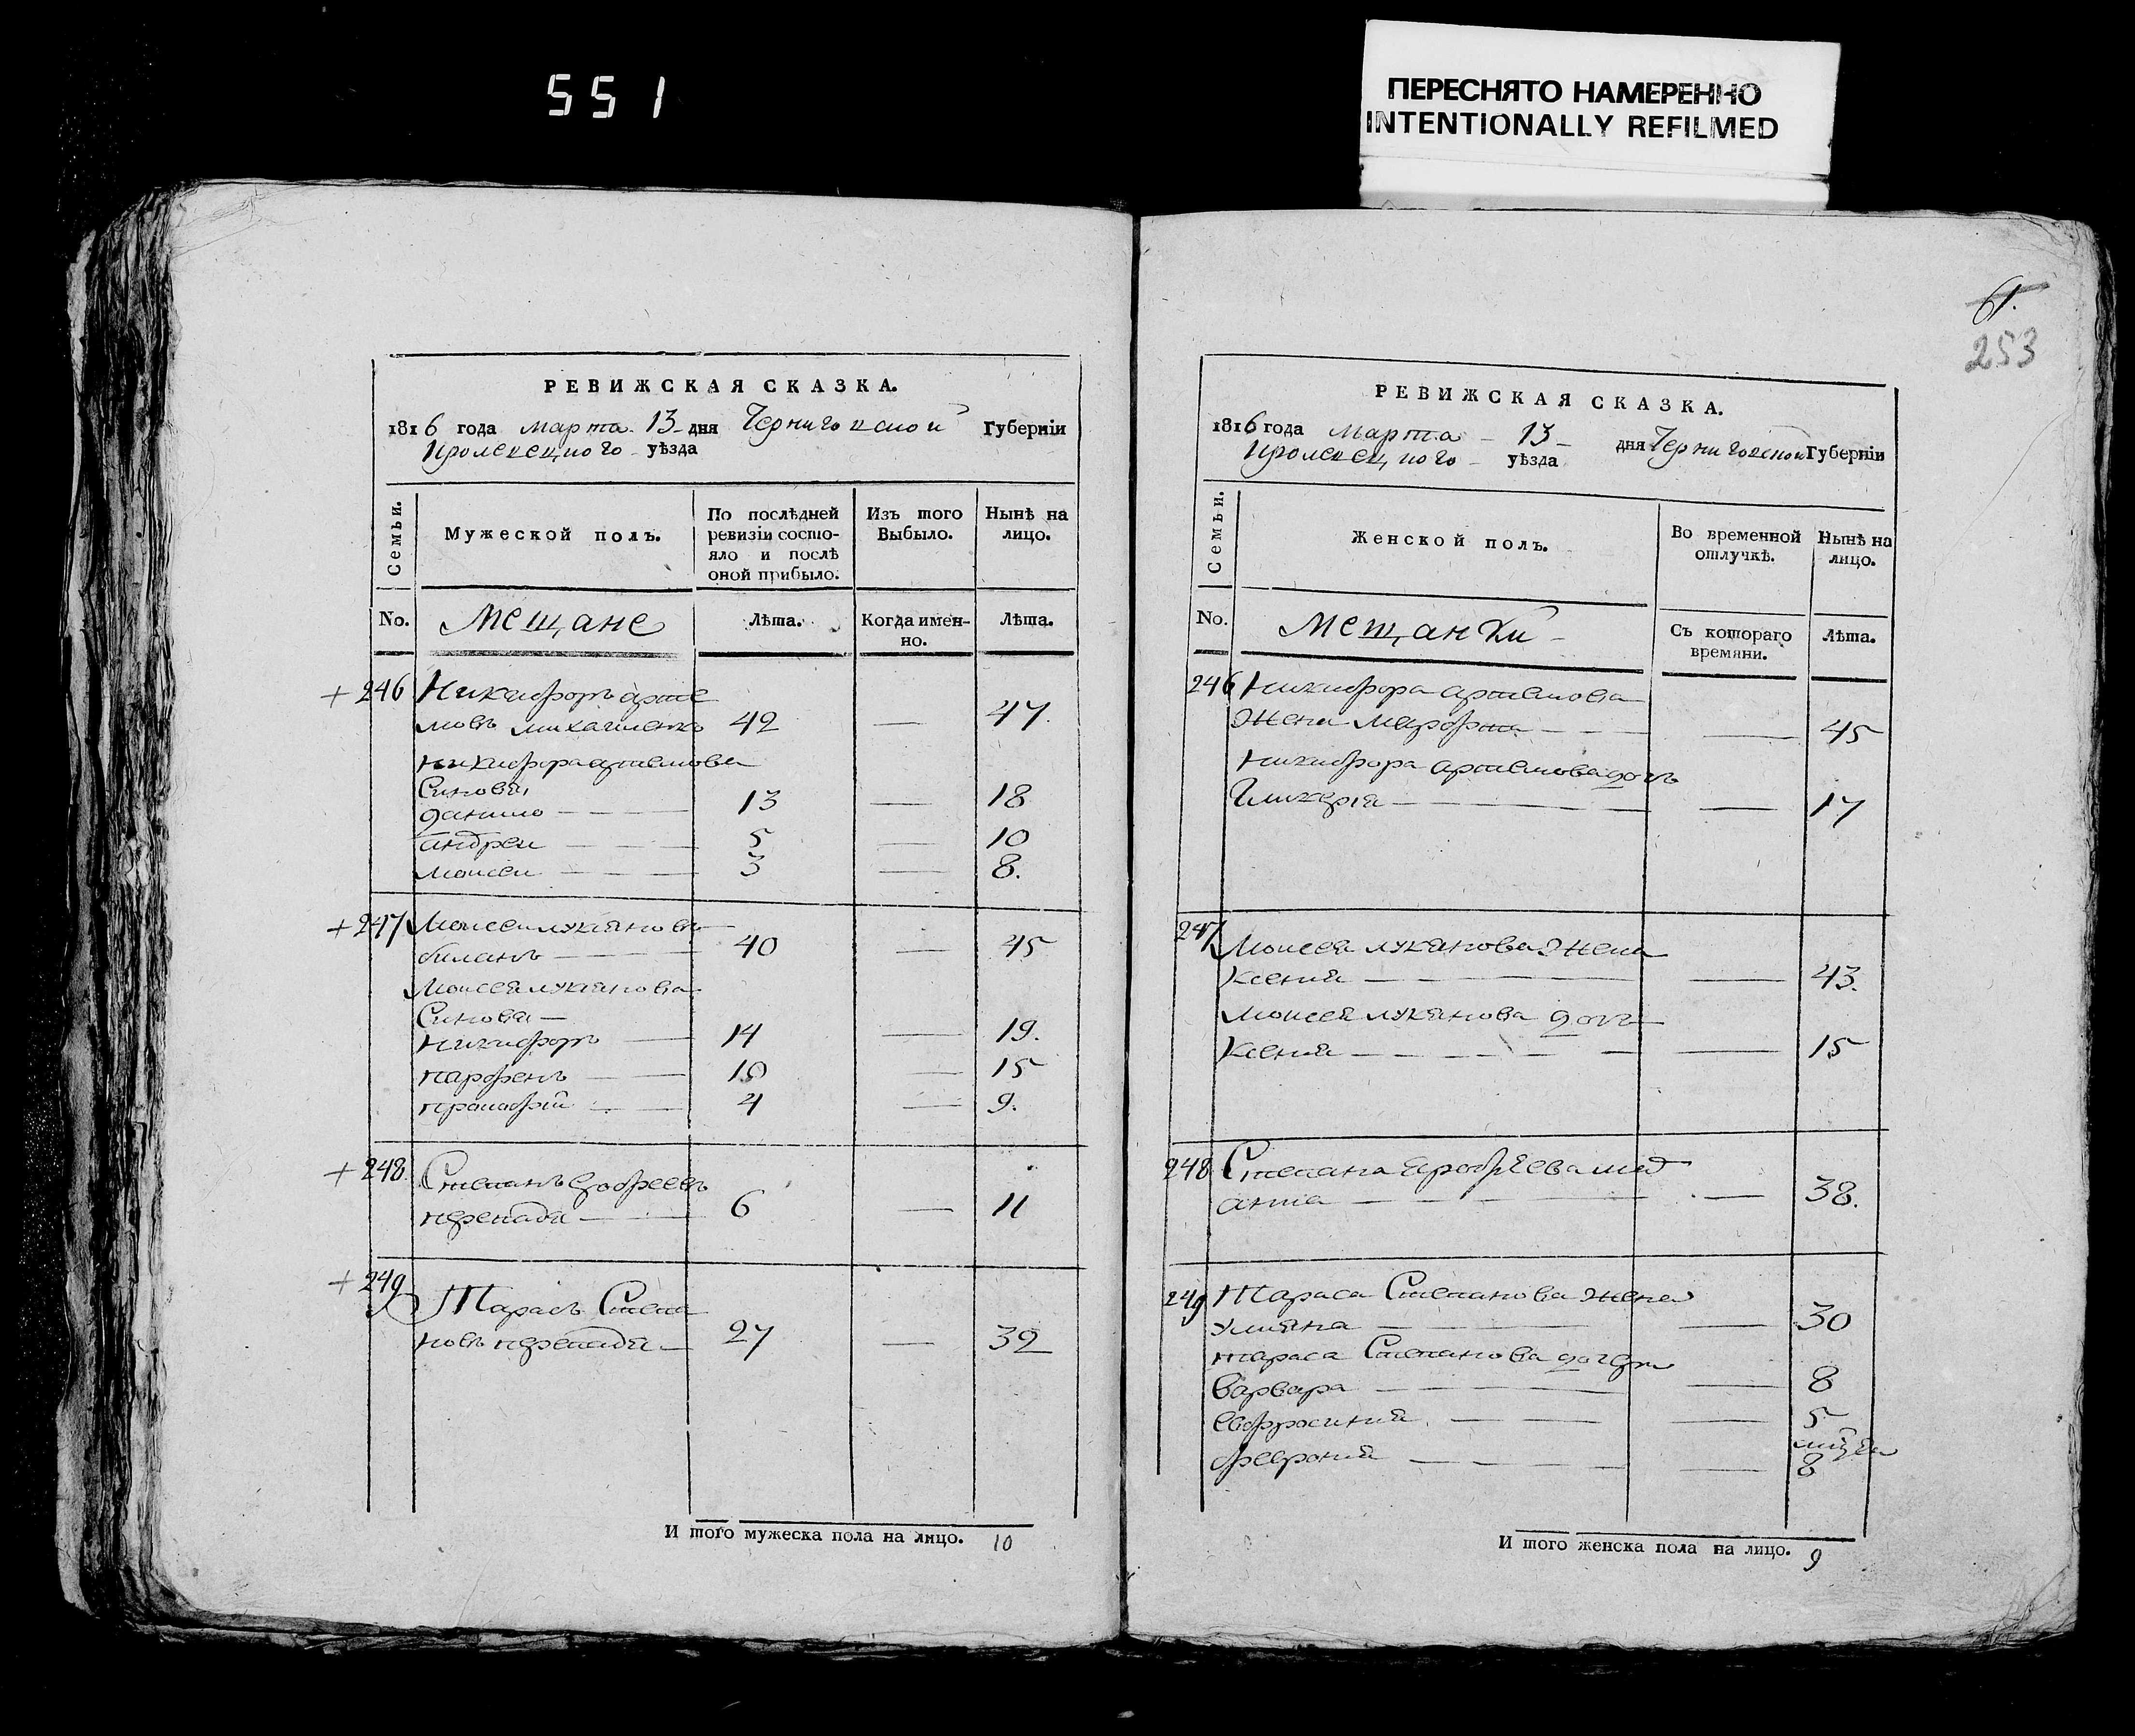 551
ПЕРЕСНЯТО НАМЕРЕННО
INTENTIONALLY REFILMED
61.
253
РЕВИЖСКАЯ СКАЗКА.
1816 года марта 13 дня Черниговской Губерніи
Кролевецкого уѣзда
Семьи.
Мужеской полъ.
По послѣдней ревизіи состо-
яло и послѣ
оной прибыло.
Изъ того
Выбыло.
Нынѣ на
лицо.
No.
Мещане
Лѣта.
Когда имен-
но.
Лѣта.
+ 246 Никифоръ арте
мовъ михайленко 42 — 47.
никифора артемова
Синовя,
данило — 13 — 18
андреи — 5 — 10
моисеи — 3 — 8.
+ 247 Моисеи лукяновъ
биланъ — 40 — 45
Моисея лукянова
Синовя —
никифоръ — 14 — 19.
парфенъ — 10 — 15
прокофий — 4 — 9.
+ 248. Степанъ
перепада — 6 — 11
+ 249 Тарасъ Степа
новъ перепада — 27 — 32
И того мужеска пола на лицо. 10
РЕВИЖСКАЯ СКАЗКА.
1816 года Марта 13 дня Черниговской Губерніи
Кролевецкого уѣзда
Семьи.
Женской полъ.
Во временной
отлучкѣ.
Нынѣ на
лицо.
No.
Мещанки
Съ котораго
времяни.
Лѣта.
246 Никифора артемова
Жена Марфа — 45
никифора артемова дочъ
Гликерія — 17
247 Моисея лукянова Жена
Ксения — 43.
Моисея лукянова дочъ
Ксения — 15
248 Степана
— 38.
249 Тараса Степанова жена
Улияна — 30
тараса Степанова дочери
Варвара — 8
Евфросиния — 5
феврония — 8
И того женска пола на лицо. 9